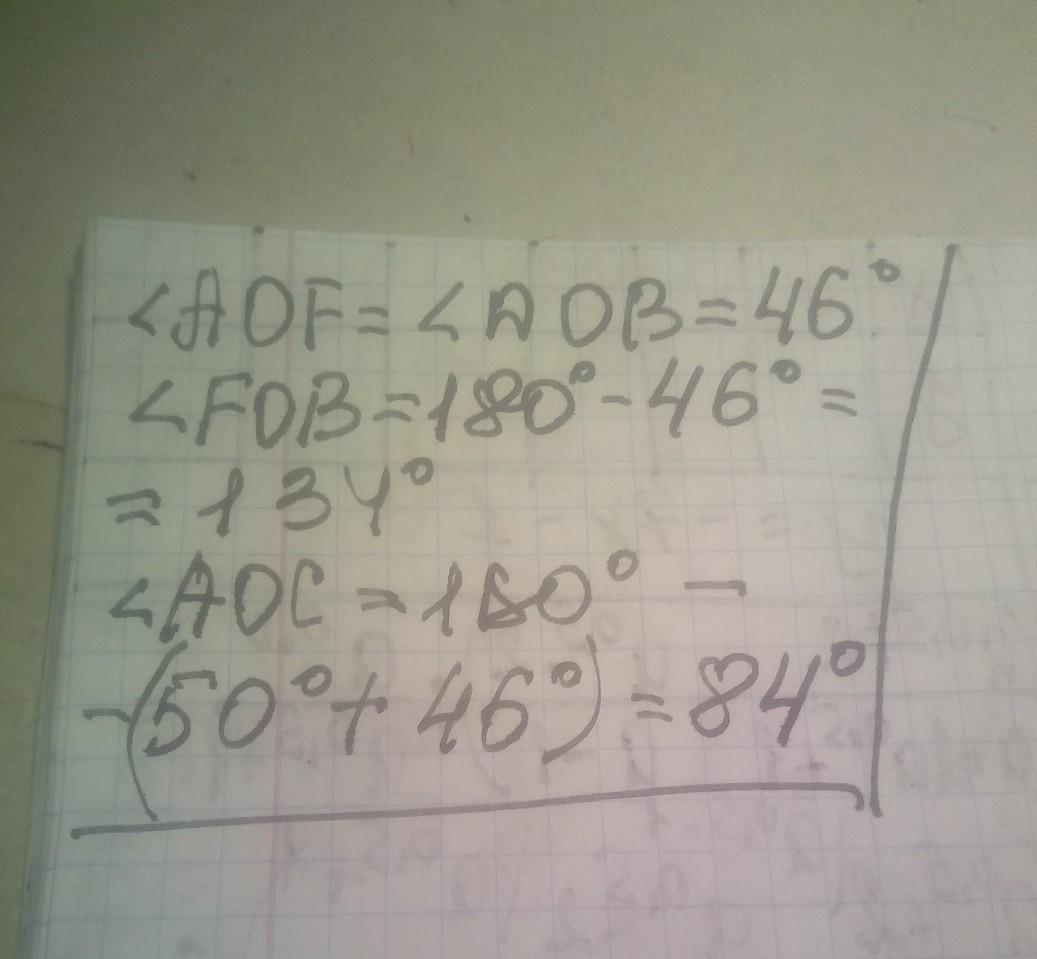 <AOF = <DOB = 46°
<FOB = 180° - 46° =
= 134°
<AOC = 180° -
-(50° + 46°) = 84°